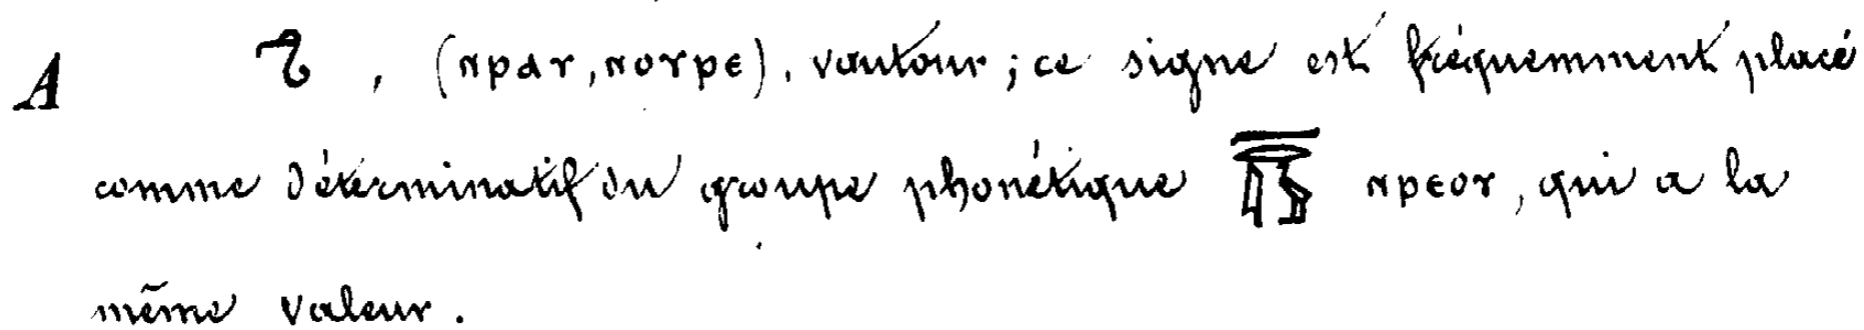 A , (ⲛⲣⲁⲩ, ⲛⲟⲩⲣⲉ), vautour ; ce signe est fréquemment placé
comme déterminatif du groupe phonétique ⲛⲣⲉⲟⲩ, qui a la
même valeur.